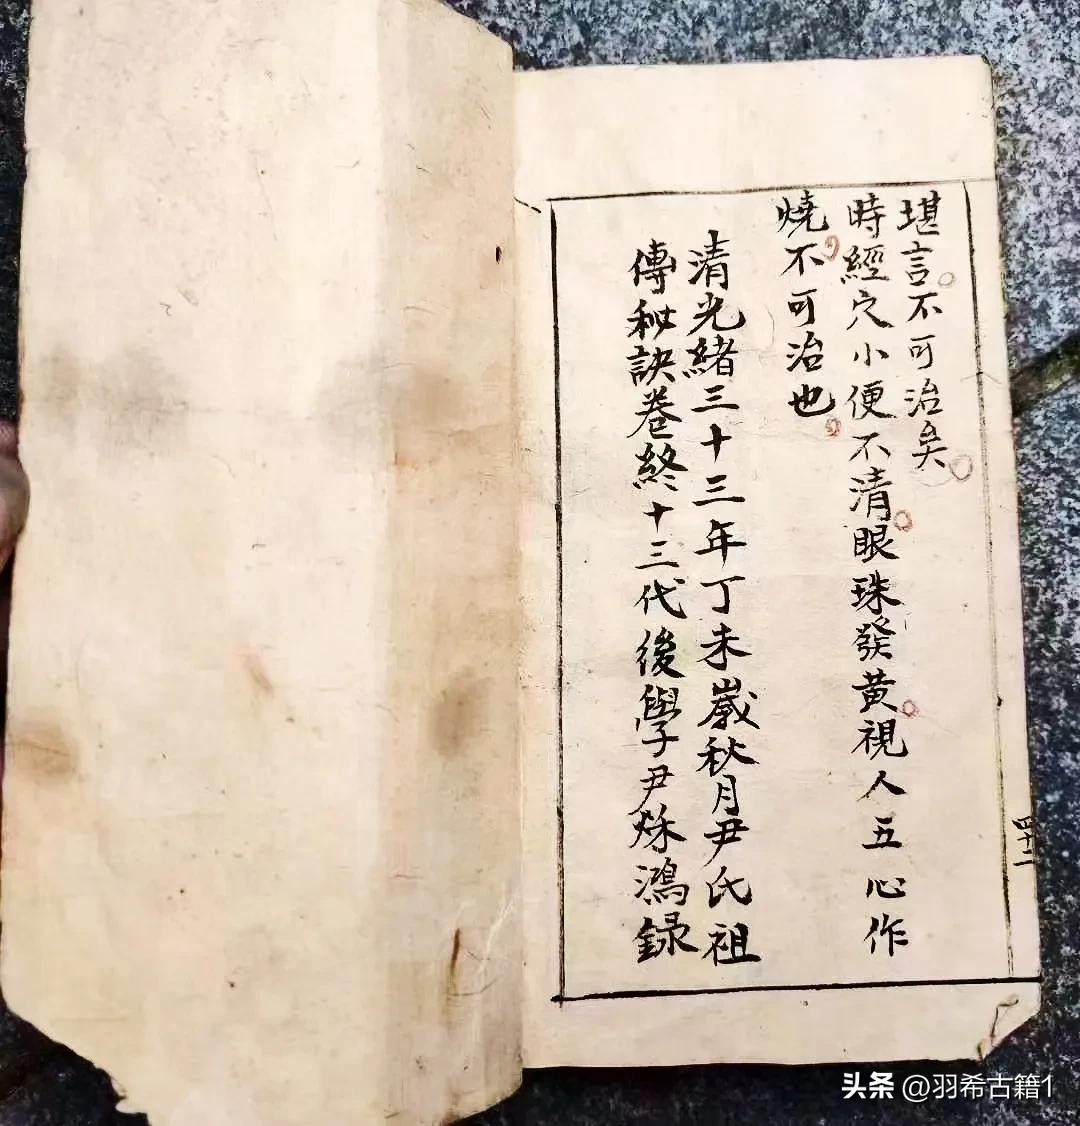 堪言不可治矣
時經穴小便不清眼珠發黄視人五心作
燒不可治也
清光緒三十三年丁未歲秋月尹氏祖
傳秘訣卷終十三代後學尹烁鴻錄
四十二
头条 @羽希古籍1